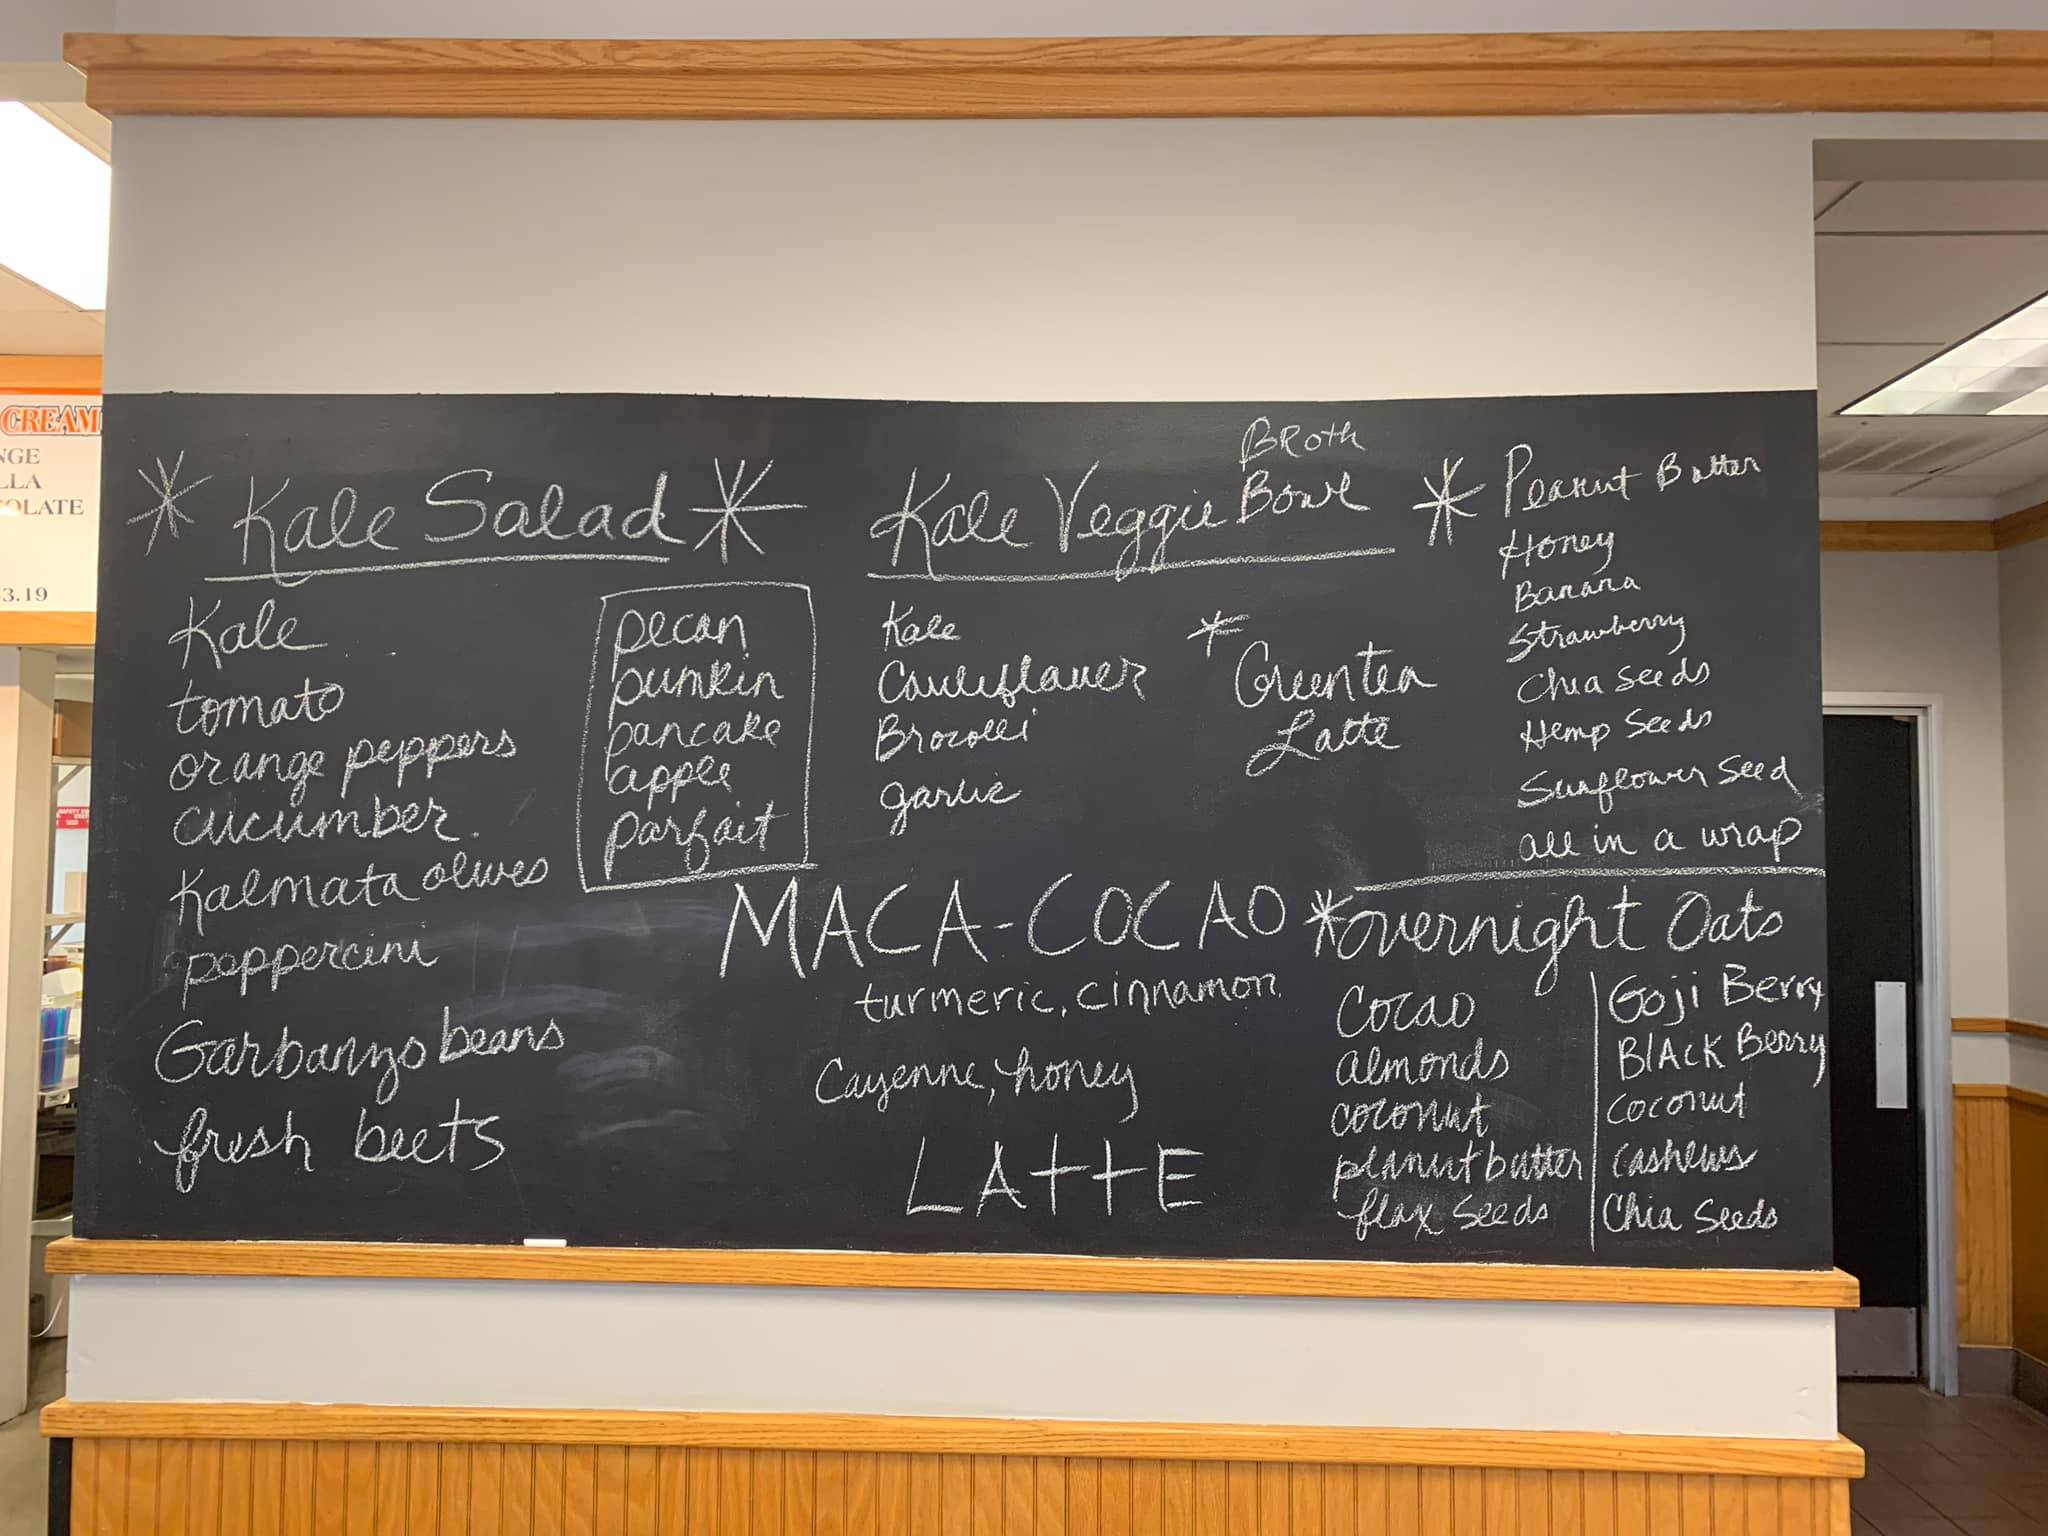 CREAM
NGE
LLA
OLATE
3.19
* Kale Salad *
Kale
tomato
orange peppers
cucumber.
Kalmata olives
peppercini
Garbanzo beans
fresh beets
pecan
pumkin
pancake
apple
parfait
Kale Veggie Broth Bowl
Kale
Cauliflauer
Brocolli
garlic
* Green tea
Latte
* Peanut Butter
Honey
Banana
Strawberry
Chia Seeds
Hemp Seeds
Sunflower Seed
all in a wrap
MACA-COCAO
turmeric, cinnamon.
Cayenne, honey
LAttE
*overnight Oats
Cocao
almonds
coconut
peanut butter
flax seeds
Goji Berry
BlAck Berry
coconut
cashews
Chia Seeds